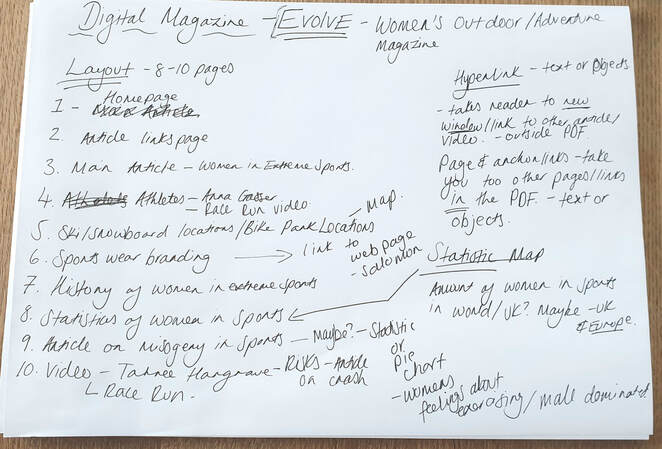 Digital Magazine - EVOLVE - Women's Outdoor/Adventure
Magazine
Layout - 8-10 pages
1 - Homepage
2. Article links page
3. Main Article - Women in Extreme Sports.
4. Athletes - Anna Gasser
- Race Run video.
5. Ski/snowboard locations/Bike Park Locations - Map.
6. Sports wear branding → link to
web page
- Salomon
7. History of women in extreme sports
8. Statistics of women in sports
9. Article on misogeny in Sports - Maybe? - Statistic
or
Pie
Chart
- womens
feelings about
/male dominated
10. Video - Tahnee Hangrave - Risks - Article
on crash
Race Run.
Hyperlink - text or objects
- takes reader to new
window/link to other article/
video. - outside PDF
Page & anchor links - take
you too other pages/links
in the PDF. - text or
objects.
Statistic Map
Amount of women in sports
in world/UK? Maybe - UK
& Europe.